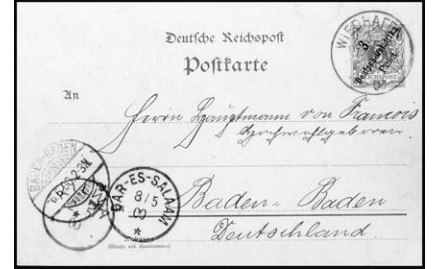 Deutsche Reichspost
Postkarte
WIEDHAFEN
3
REICHSPOST
An
Herrn Hauptmann von Francois
Hochwohlgeboren.
BADEN-BADEN
DAR-ES-SALAAM
8/5
00
*
Baden-Baden
Deutschland.